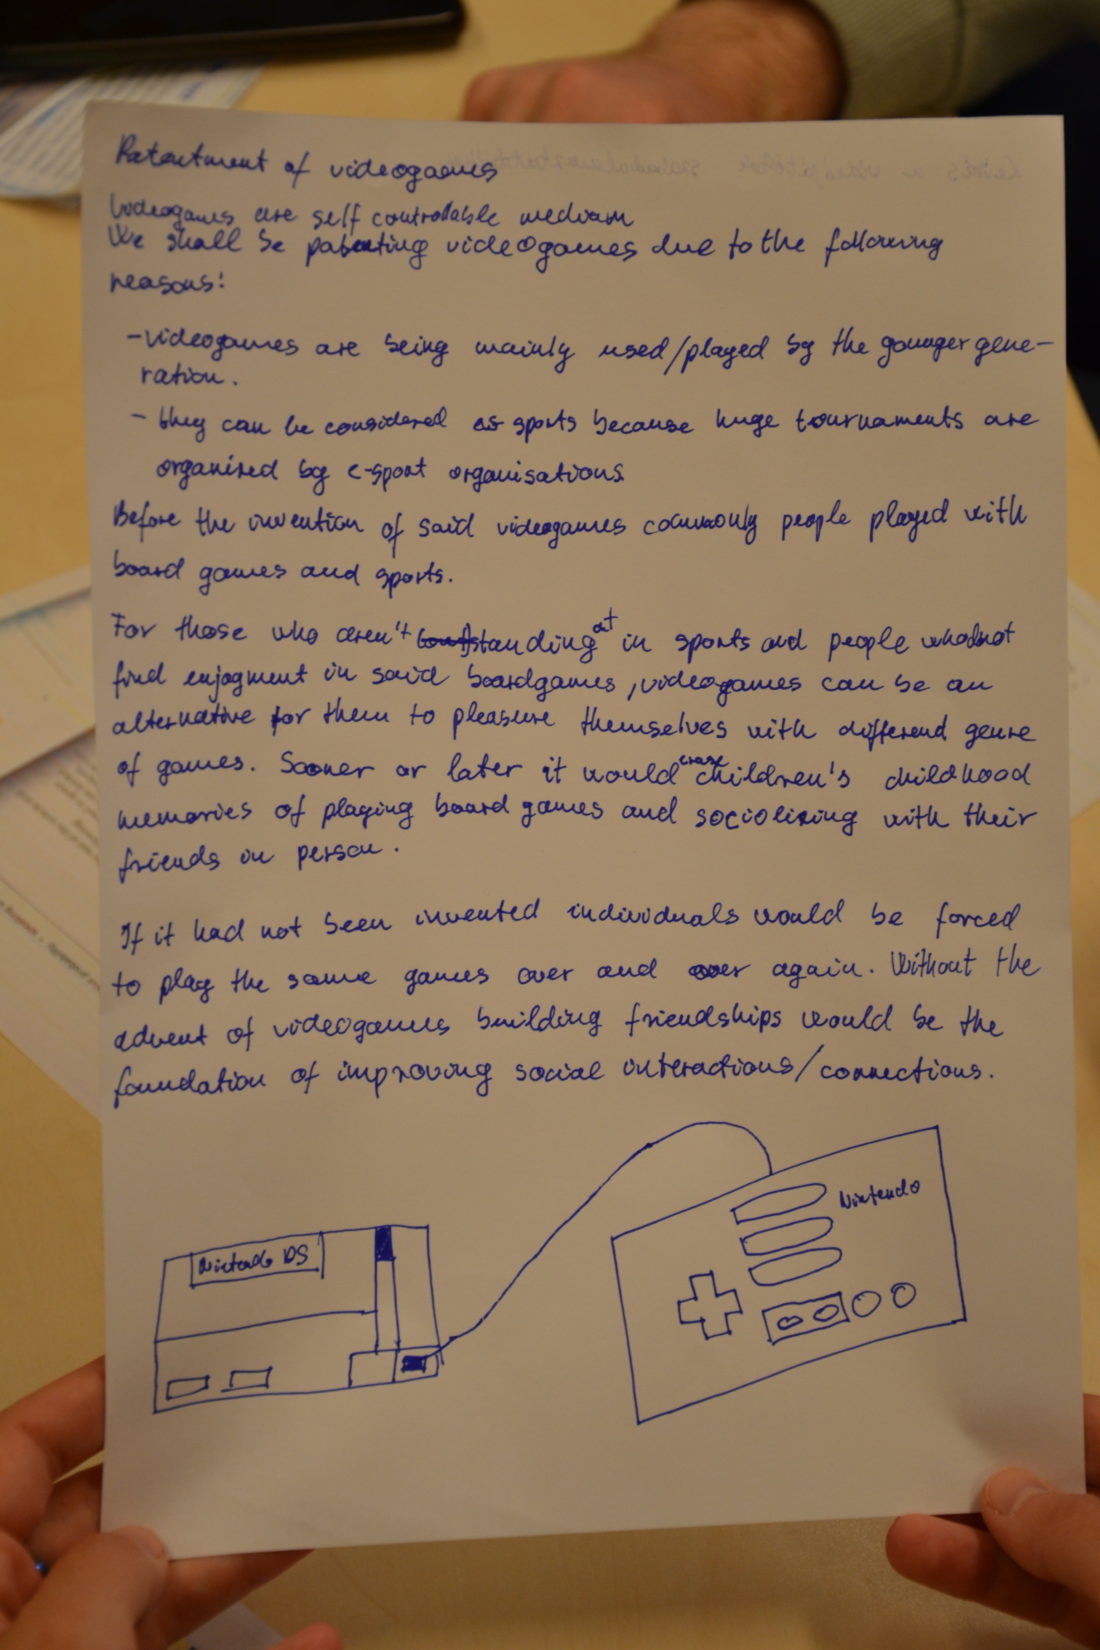 Patentment of videogames
Videogames are self controllable medium
We shall be patenting videogames due to the following
reasons:
- videogames are being mainly used/played by the younger gene-
ration.
- they can be considered as sports because huge tournaments are
organized by e-sport organisations
Before the invention of said videogames commonly people played with
board games and sports.
For those who aren't standing at in sports and people who do not
find enjoyment in said boardgames, videogames can be an
alternative for them to pleasure themselves with differend genre
of games. Sooner or later it would erase children's childhood
memories of playing board games and sociolizing with their
friends in person.
If it had not been invented individuals would be forced
to play the same games over and over again. Without the
advent of videogames building friendships would be the
foundation of improving social interactions/connections.
Nintendo
Nintendo DS